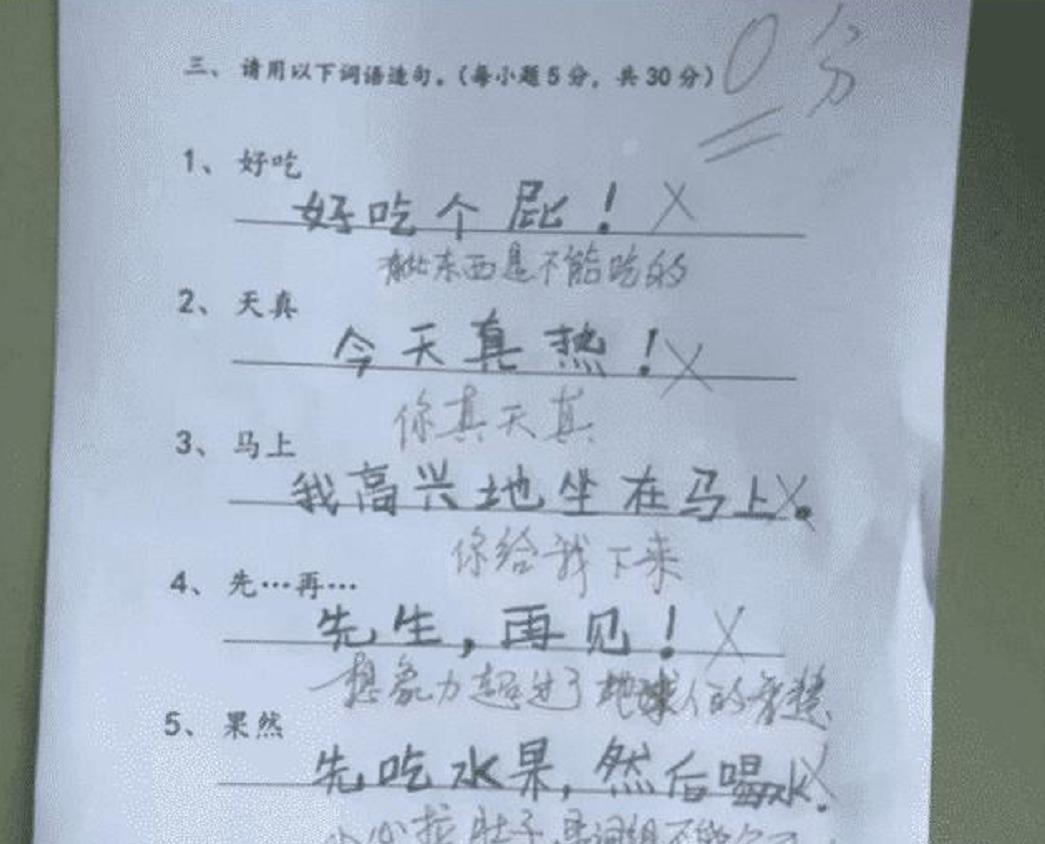 三、请用以下词语造句。(每小题5分，共30分) 0分
1、好吃
好吃个屁！
有些东西是不能吃的
2、天真
今天真热！
你真天真
3、马上
我高兴地坐在马上。
你给我下来
4、先…再…
先生，再见！
想象力超过了地球人的智慧
5、果然
先吃水果，然后喝水.
小心拉肚子